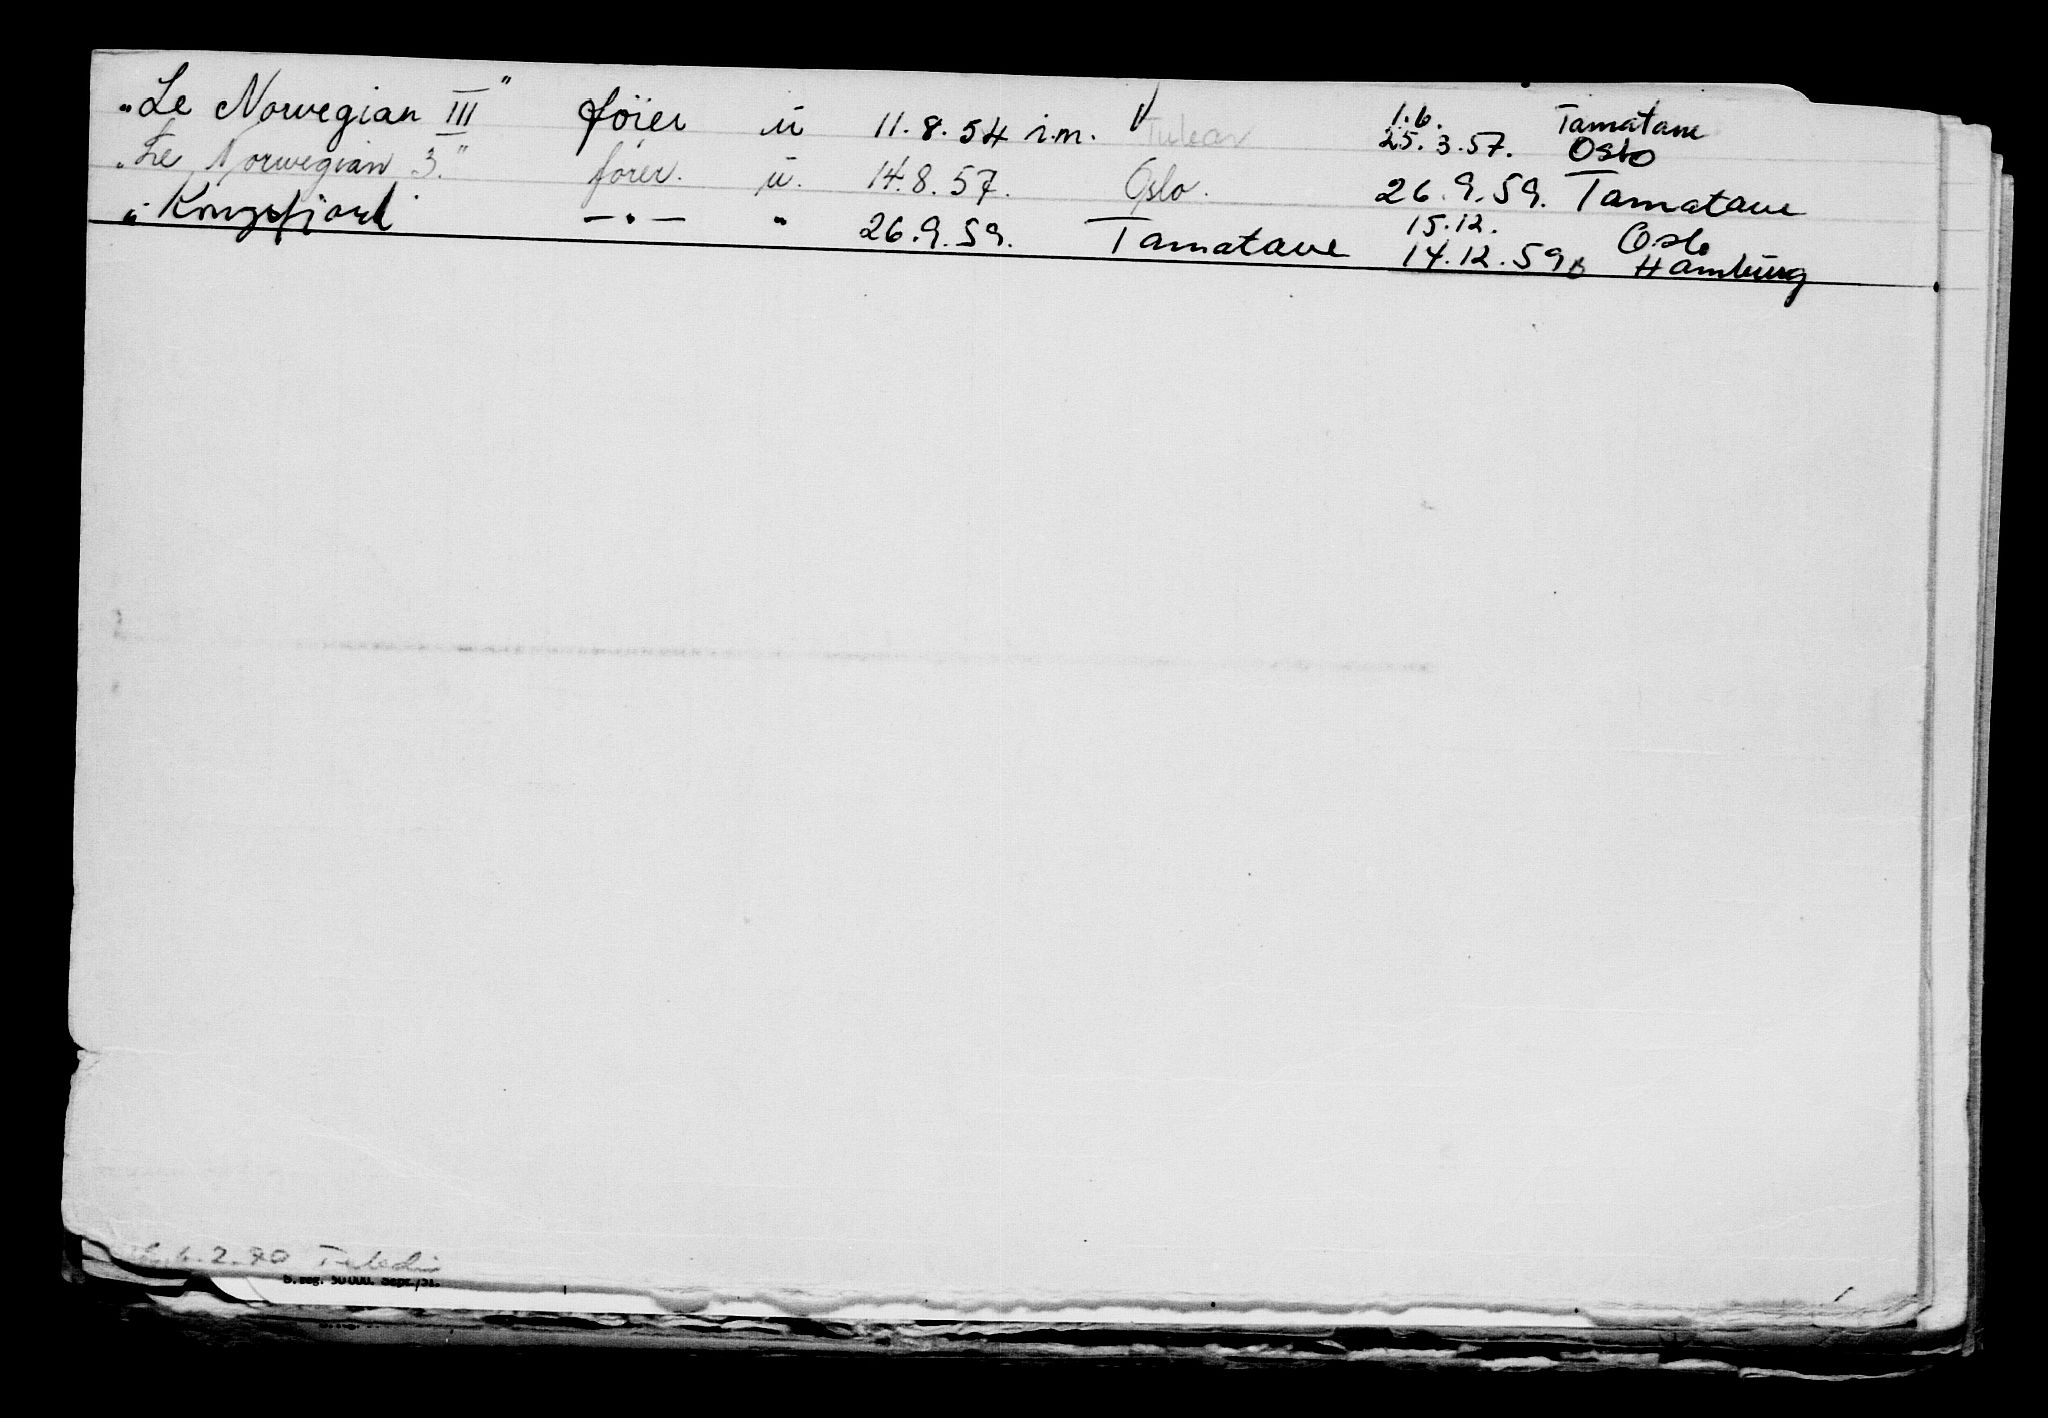 "Le Norwegian III" fører u 11.8.54 i.m. Tulear 1.6. Tamatave
25.3.57. Oslo
"Le Norwegian 3." fører. u. 14.8.57. Oslo. 26.9.59. Tamatave
"Kongsfjord" —"— " 26.9.59. Tamatave 15.12. Oslo
14.12.59 Hamburg
S.reg. 50000. Sept./51.